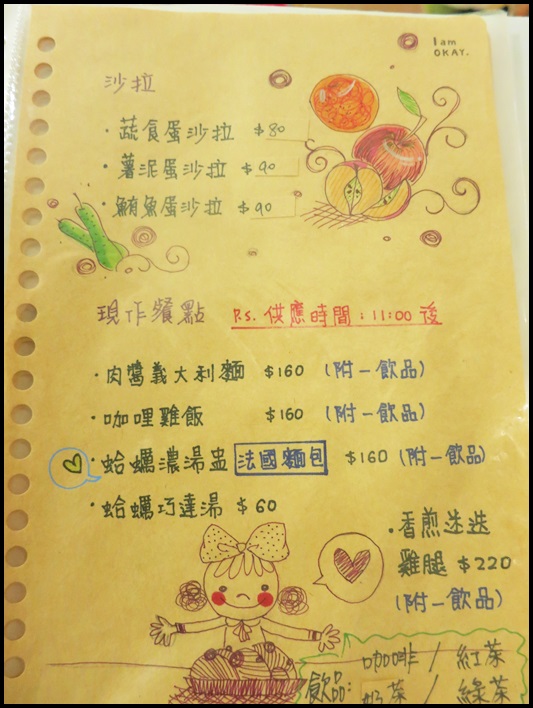 I am
OKAY.
沙拉
·蔬食蛋沙拉 $80
·薯泥蛋沙拉 $90
·鮪魚蛋沙拉 $90
現作餐點 P.S. 供應時間：11:00 後
·肉醬義大利麵 $160 (附一飲品)
·咖哩雞飯 $160 (附一飲品)
·蛤蠣濃湯盅 法國麵包 $160 (附一飲品)
·蛤蠣巧達湯 $60
·香煎迷迭
雞腿 $220
(附一飲品)
咖啡 / 紅茶
飲品: 奶茶 / 綠茶